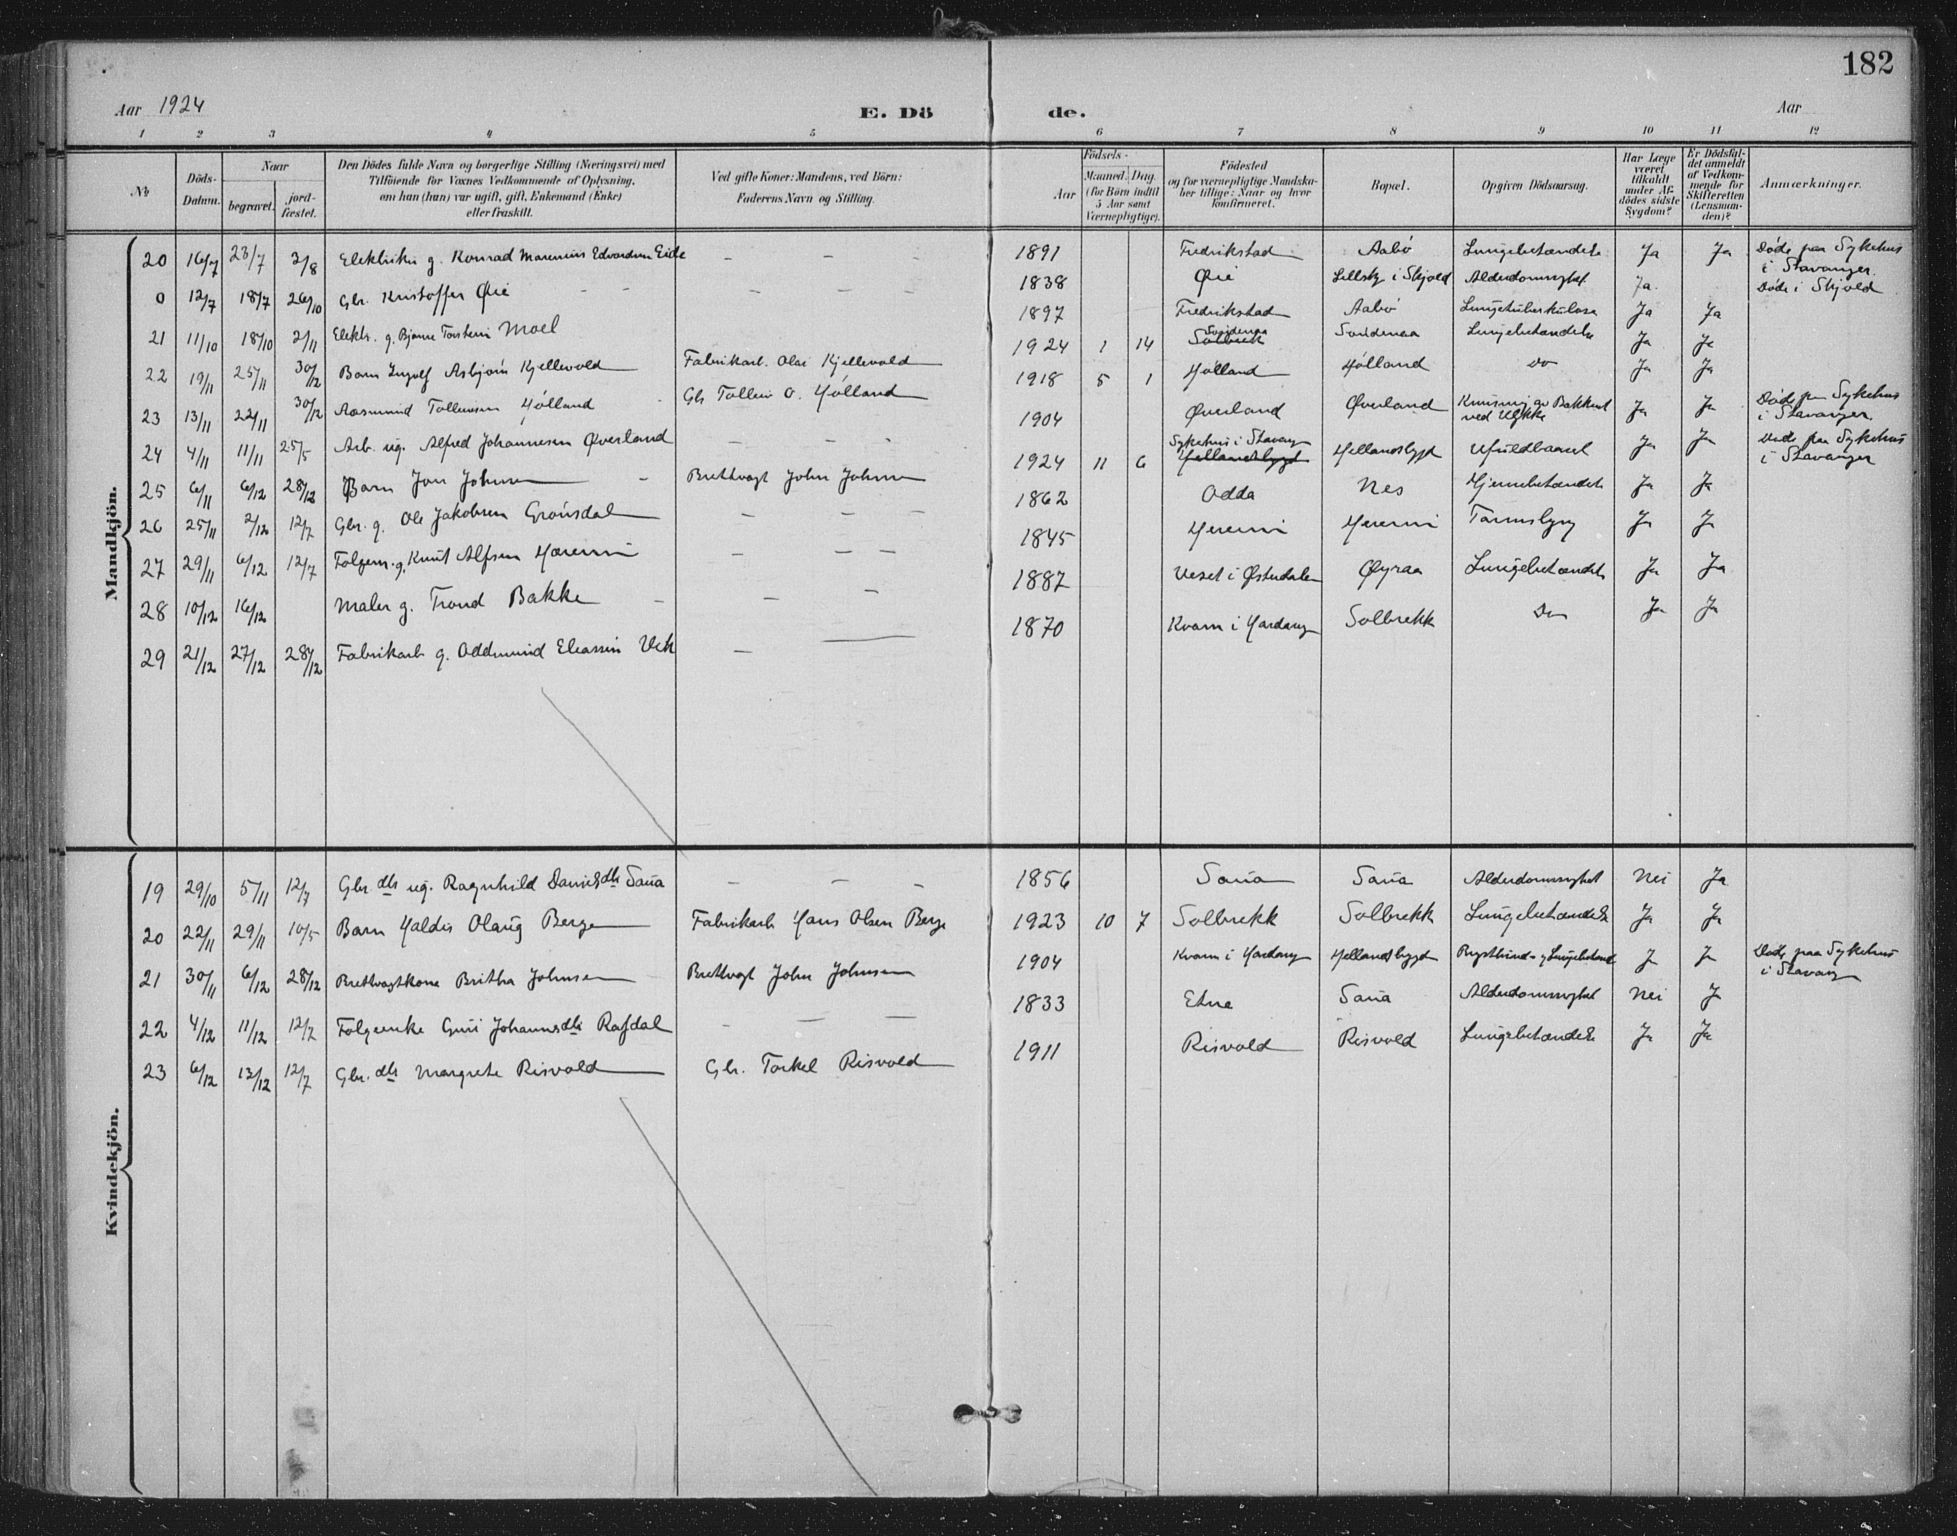 182
Aar 1924 E. Dö de. Aar
1 2 3 4 5 6 7 8 9 10 11 12
No.
Döds-Datum.
Naar
begravet.
jord-fæstet.
Den Dödes fulde Navn og borgerlige Stilling (Næringsvei) med
Tilföiende for Voxnes Vedkommende af Oplysning,
om han (hun) var ugift, gift, Enkemand (Enke)
eller fraskilt.
Ved gifte Koner: Mandens, ved Börn:
Faderens Navn og Stilling.
Födsels-
Aar
Maaned. Dag.
(for Börn indtil
5 Aar samt
Værnepligtige).
Födested
og for værnepligtige Mandska-
ber tillige: Naar og hvor
konfirmeret.
Bopæl.
Opgiven Dödsaarsag.
Har Læge
været
tilkaldt
under Af-
dödes sidste
Sygdom?
Er Dödsfal-
det anmeldt
af Vedkom-
mende for
Skifteretten
(Lensman-
den)?
Anmærkninger.
Mandkjön.
20 16/7 23/7 2/8 Elektriker g. Konrad Marenius Edvardsen Eide - - - 1891 Fredrikstad Aabø Lungebetændelse Ja Ja Døde paa Sykehus i Stavanger
0 12/7 18/7 26/10 Gbr. Kristoffer Øie - - - - - 1838 Øie i Skjold Alderdomssyghet Ja Døde i Skjold
21 11/10 18/10 2/11 Elektr. g. Bjarne Torstein Moel 1897 Fredrikstad Aabø Lungetuberkulose Ja Ja
22 19/11 25/11 30/12 Barn Ingolf Asbjørn Kjellevold Fabrikarb. Olai Kjellevold 1924 1 14 Solbrekk Lungebetændelse Ja Ja
23 13/11 22/11 30/12 Rasmund Tolleivsen Hølland Gbr Tolleiv O. Hølland 1918 5 1 Hølland Hølland do Ja Ja
24 4/11 11/11 25/5 Arb. ug. Alfred Johannesen Øverland - - - 1904 Øverland Øverland Knusning av Bækkenet ved Ulykke Ja Ja Døde paa Sykehus i Stavanger
25 6/11 6/12 28/12 Barn Jon Johnsen - Brettvagt John Johnsen 1924 11 6 Sykehus i Stavanger Hellandsbygd Hellandsbygd Ufuldbaaret Ja Ja Døde paa Sykehus i Stavanger
26 25/11 2/12 12/7 Gbr. g. Ole Jakobsen Grønsdal - - - 1862 Odda Nes Hjernebetændelse Ja Ja
27 29/11 6/12 12/7 Følgem. g. Knut Alfsen Hereimi - - - 1845 Hereimi Hereimi Tarmslyng Ja Ja
28 10/12 16/12 Maler g. Trond Bakke - - - 1887 Veset i Østerdalen Øyraa Lungebetændelse Ja Ja
29 21/12 27/12 28/12 Fabrikarb g. Oddmund Eleassen Vik - 1870 Kvam i Hardang Solbrekk Do Ja Ja
Kvindekjön.
19 29/10 5/11 12/7 Gbr. dtr ug. Ragnhild Danielsdtr Saua - - - 1856 Saua Saua Alderdomssyghet Nei Ja
20 22/11 29/11 10/5 Barn Haldis Olaug Berge Fabrikarb Hans Olsen Berge 1923 10 7 Solbrekk Solbrekk Lungebetændelse Ja Ja
21 30/11 6/12 28/12 Brettvagtkone Britha Johnsen Brettvagt John Johnsen 1904 Kvam i Hardang Hellandsbygd Brysthinde- og Lungebetænd Ja Ja Døde paa Sykehus i Stavang
22 4/12 11/12 12/7 Følgeenke Guri Johannsdtr Rafdal - - - 1833 Etne Saua Alderdomssyghet Nei Ja
23 6/12 13/12 12/7 Gbr. dtr Margrete Risvold Gbr. Torkel Risvold 1911 Risvold Risvold Lungebetændelse Ja Ja